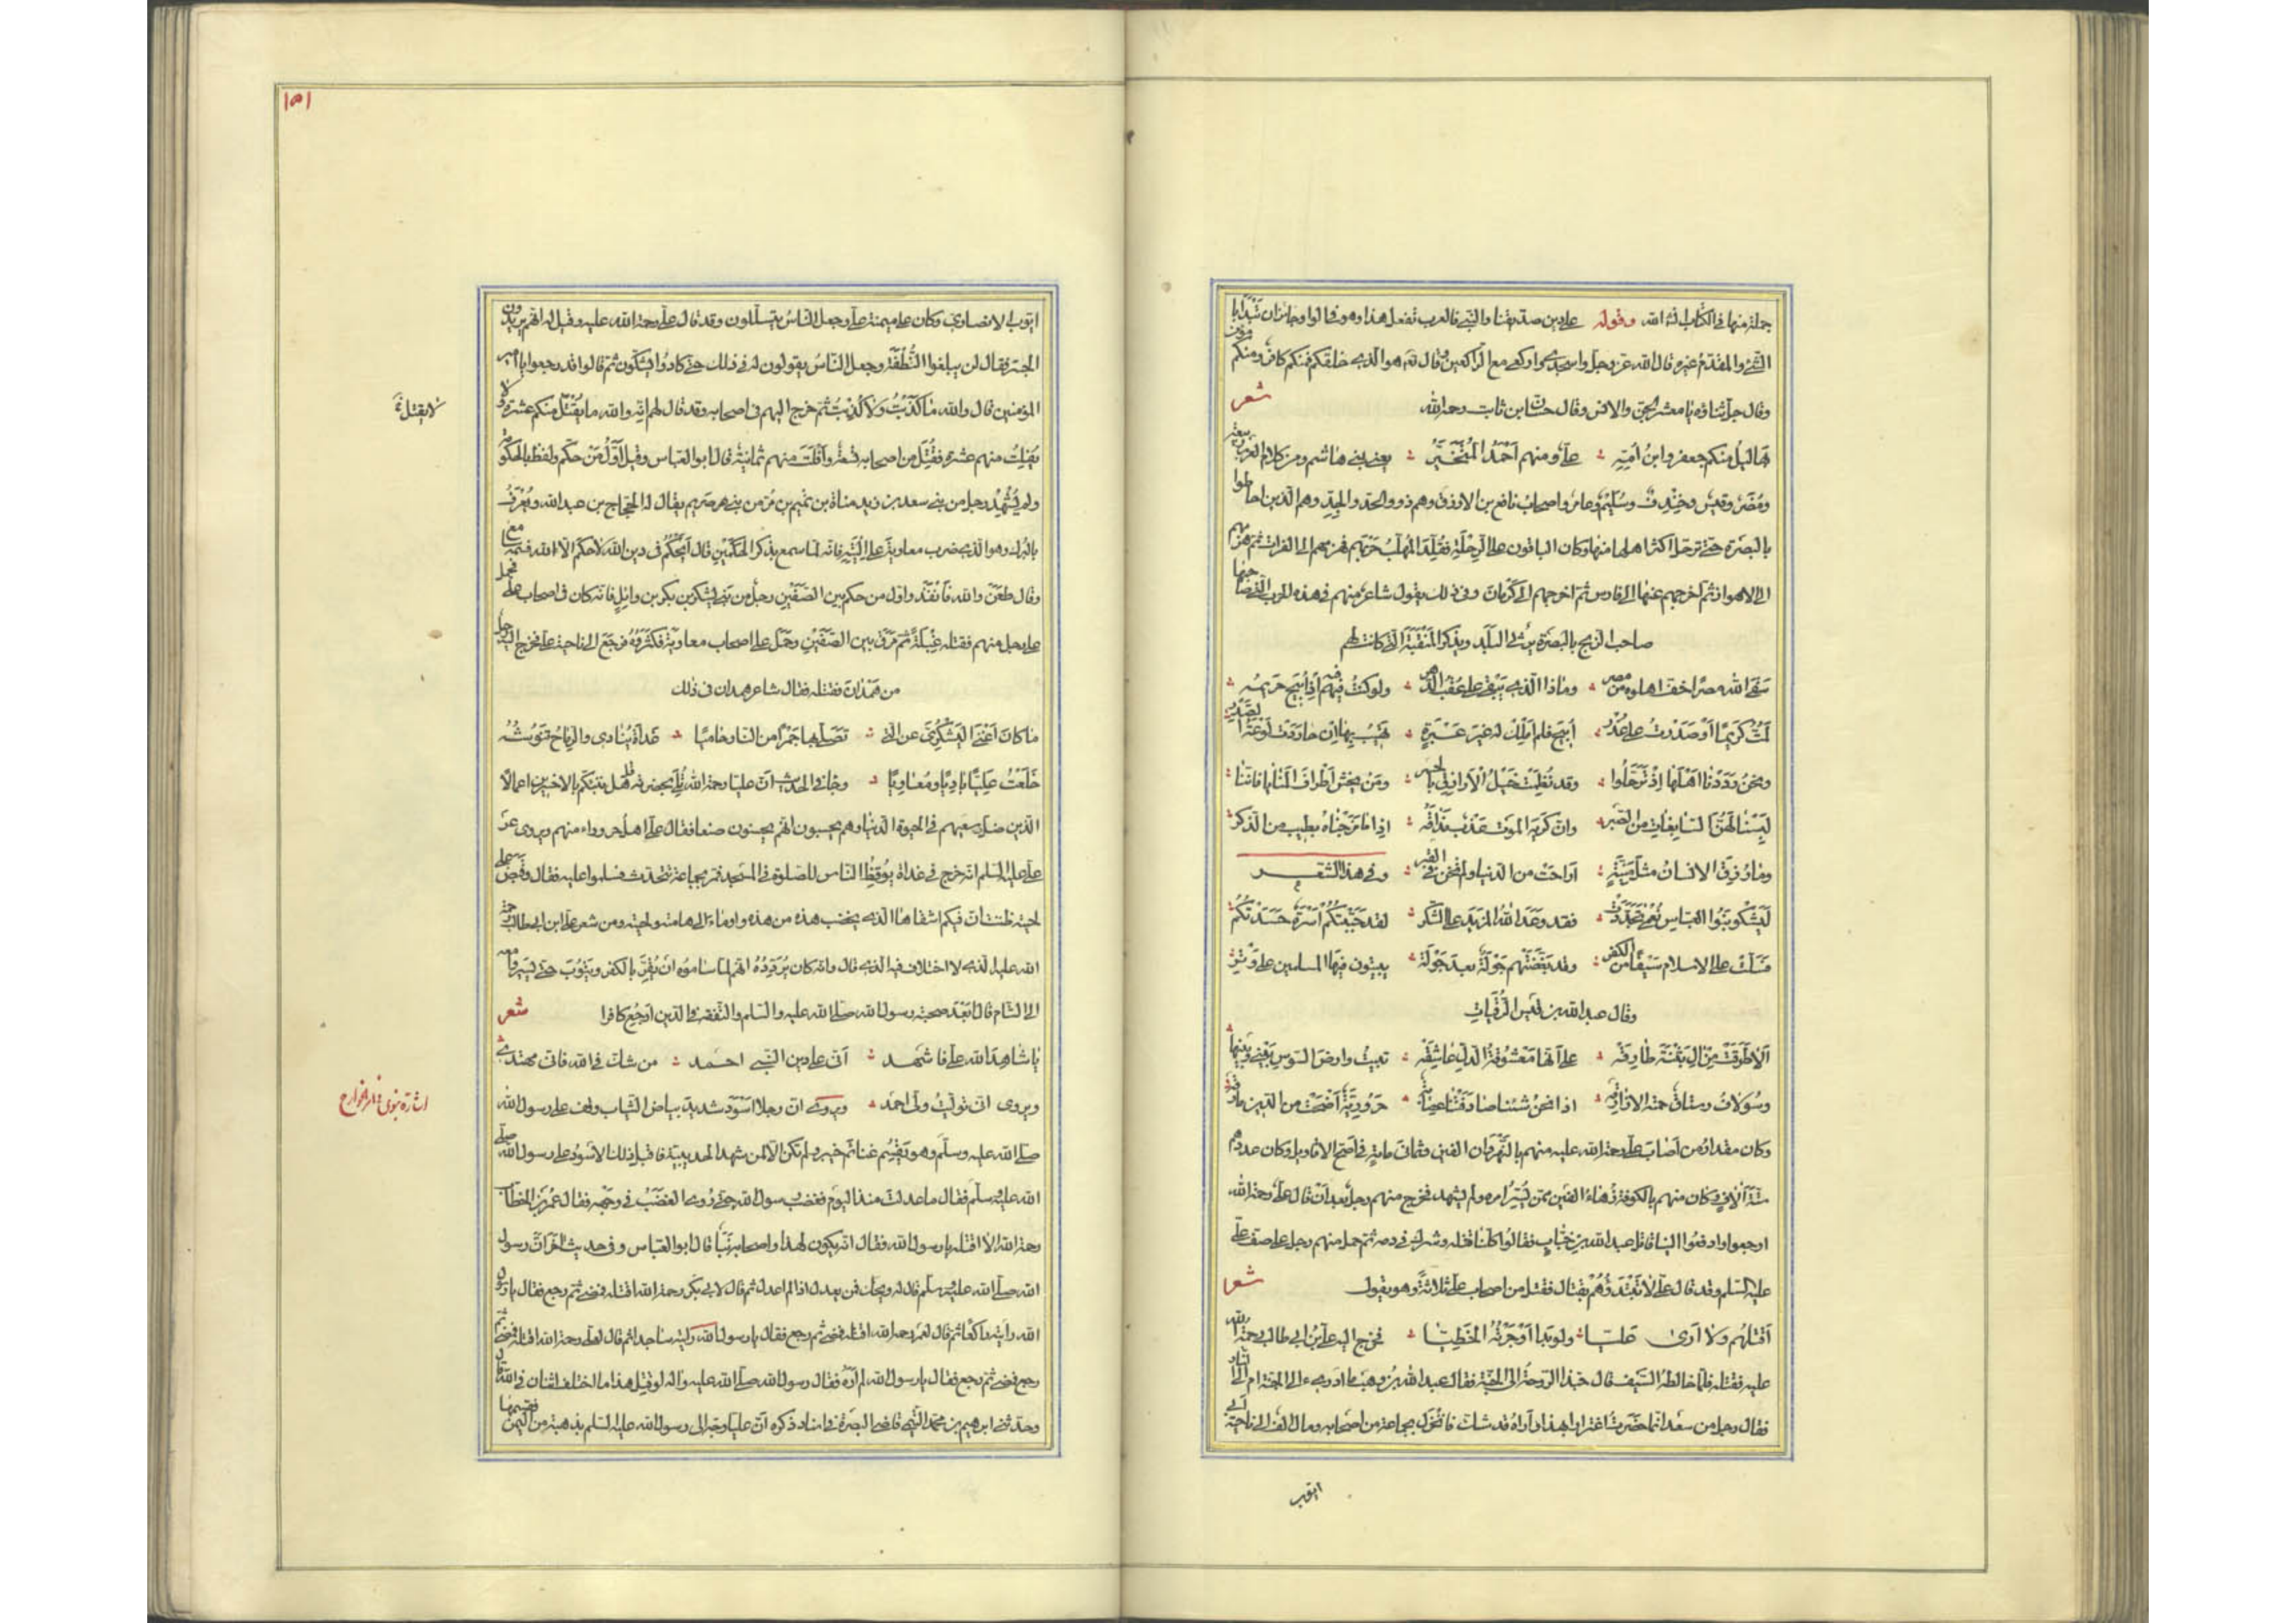 جملة منها في الكتاب ان شاء الله وقوله على دين صديقنا والنبي فالعرب تفعل هذا وهو في الواو جائز ان تبدأ بالشيء
والمقدم غيره قال الله عز وجل واسجدي واركعي مع الراكعين وقال تع هو الذي خلقكم فمنكم كافر ومنكم مؤمن
وقال جل ثناؤه يا معشر الجن والانس وقال حسان بن ثابت رحمه الله شعر
بهاليل منكم جعفر وابن أمه على ومنهم أحمد المتخير يعني بني هاشم ومن كلام العرب ربيعة
ومضر وقيس وخندف وسليم وعامر واصحاب نافع بن الازرق وهم ذوو الحد والجد وهم الذين احاطوا
بالبصرة حتى ترحل اكثر اهلها منها وكان الباقون على الرحلة فقلد المهلب حربهم فهزمهم الى الفرات ثم هزمهم
الى الاهواز ثم اخرجهم عنها الى فارس ثم اخرجهم الى كرمان وفي ذلك يقول شاعر منهم في هذه الحرب التي صاحبها
صاحب الزنج بالبصرة يرثي البلد ويذكر المنقبة التي كانت لهم
سقى الله مصرا خف اهلوه من مصر وماذا الذي يبقى على عقب الدهر ولو كنت فيهم اذ أبيح حريمه
لمت كريما أو صدرت على عذر أبيح فلم املك له غير عبرة تهيب بها ان حاردت لوعة الصدر
ونحن رددنا اهلها إذ ترحلوا وقد نظمت خيل الازارق بالجسر ومن يخش أطراف المنايا فاننا
لبسنا لهن السابغات من الصبر وان كريه الموت عذب مذاقه اذا ما مزجناه بطيب من الذكر
وما رزق الانسان مثل منية اراحت من الدنيا ولم تخز في القبر وفي هذا الشعر
ليشكر بنو العباس نعمى تجددت فقد وعد الله المزيد على الشكر لقد جنبتكم أسرة حسدتكم
فسلت على الاسلام سيفا من الكفر وقد نغصتهم جولة بعد جولة يبيتون فيها المسلمين على وتر
وقال عبد الله بن قيس الرقيات
ألا طرقت من آل بثنة طارقه على أنها معشوقة الدل عاشقه تبيت وارض السوس بيني وبينها
وسولاف رستاق حمته الازارقه اذا نحن شئنا صادفتنا عصابة حرورية أضحت من الدين مارقه
وكان مقدار من اصاب علي رحمة الله عليه منهم بالنهروان الفين وثمان مائة في اصح الاقاويل وكان عددهم
ستة آلاف وكان منهم بالكوفة زهاء الفين ممن يسر امره ولم يشهد فخرج منهم رجل بعد أن قال علي رحمه الله
ارجعوا وادفعوا الينا قاتل عبد الله بن خباب فقالوا كلنا قتله وشرك في دمه ثم حمل منهم رجل على صف علي
عليه السلم وقد قال علي لا تبتدؤهم بقتال فقتل من اصحاب علي ثلاثة وهو يقول شعرا
أقتلهم ولا أرى عليا ولو بدا أوجرته الخطيا فخرج اليه علي بن ابي طالب رحمة الله
عليه فقتله فلما خالطه السيف قال حبذا الروحة الى الجنة فقال عبد الله بن وهب ما ادري الى الجنة ام الى النار
فقال رجل من سعد انما حضرت اغترارا بهذا واراه قد شك فانخزل بجماعة من اصحابه ومال الف الى ناحية ابي
ايوب
١٥١
ايوب الانصاري وكان على ميمنة علي وجعل الناس يتسللون وقد قال علي رحمة الله عليه وقيل له انهم يريدون
الجسر فقال لن يبلغوا النطفة وجعل الناس يقولون له في ذلك حتى كادوا يشكون ثم قالوا قد رجعوا يا امير
المؤمنين قال والله ما كذبت ولا كذبت ثم خرج اليهم في اصحابه وقد قال لهم انه والله ما يقتل منكم عشرة ولا
لا يقتل
يفلت منهم عشرة فقتل من اصحابه تسعة وأفلت منهم ثمانية قال ابو العباس وقيل أول من حكم ولفظ بالحكومة
ولم يشهد رجل من بني سعد بن زيد مناة بن تميم بن مر من بني صريم يقال له الحجاج بن عبد الله ويعرف
بالبرك وهو الذي ضرب معاوية على اليته فانه لما سمع بذكر الحكمين قال أيحكم في دين الله لا حكم الا لله فسمعه سامع
وقال طعن والله فأنفذ واول من حكم بين الصفين رجل من بني يشكر بن بكر بن وائل فانه كان في اصحاب علي فحمل
على رجل منهم فقتله غيلة ثم مرق بين الصفين وحمل على اصحاب معاوية فكثروه فرجع الى ناحية علي فخرج اليه رجل
من همدان فقتله فقال شاعر همدان في ذلك
ما كان أغنى اليشكري عن التي تصلى بها جمرا من النار حاميا غداة ينادي والرماح تنوشه
خلعت عليا باديا ومعاويا وجاء في الحديث ان عليا رحمه الله تلي بحضرته قل هل ننبئكم بالاخسرين اعمالا
الذين ضل سعيهم في الحيوة الدنيا وهم يحسبون انهم يحسنون صنعا فقال علي اهل حروراء منهم ويروى عن
علي عليه السلم انه خرج في غداة يوقظ الناس للصلوة في المسجد فمر بجماعة تتحدث فسلم وسلموا عليه فقال وقبض على
لحيته ظننت ان فيكم اشقاها الذي يخضب هذه من هذه واوماء الى هامته ولحيته ومن شعر علي ابن ابي طالب رحمة
الله عليه الذي لا اختلاف فيه الذي قال وانه كان يردده انهم لما ساموه ان يقر بالكفر ويتوب حتى يسيروا معه
الى الشام قال أبعد صحبة رسول الله صلى الله عليه والسلم والتفقه في الدين أرجع كافرا شعر
يا شاهد الله علي فاشهد أني على دين النبي احمد من شك في الله فاني مهتدي
ويروى اني توليت ولي احمد ويروى ان رجلا اسود شديد بياض الثياب وقف على رسول الله
اشارة نبوي خوارج
صلى الله عليه وسلم وهو يقسم غنائم خيبر ولم تكن الا لمن شهد الحديبية فاقبل ذلك الاسود على رسول الله صلى
الله عليه وسلم فقال ما عدلت منذ اليوم فغضب رسول الله حتى رؤي الغضب في وجهه فقال عمر بن الخطاب
رحمه الله الا اقتله يا رسول الله فقال انه يكون لهذا واصحابه نبأ قال ابو العباس وفي حديث آخر ان رسول
الله صلى الله عليه وسلم قال له ويحك فمن يعدل اذا لم اعدل ثم قال لابي بكر رحمه الله اقتله فمضى ثم رجع فقال يا رسول
الله رايته راكعا ثم قال لعمر رحمه الله اقتله فمضى ثم رجع فقال يا رسول الله رايته ساجدا ثم قال لعلي رحمه الله اقتله فمضى ثم
رجع فمضى ثم رجع فقال يا رسول الله لم أره فقال رسول الله صلى الله عليه واله لو قتل هذا ما اختلف اثنان في الله قال
وحدثني ابرهيم بن محمد التيمي قاضي البصرة في اسناد ذكره أن عليا وجه الى رسول الله عليه السلم بذهبة من اليمن فقسمها